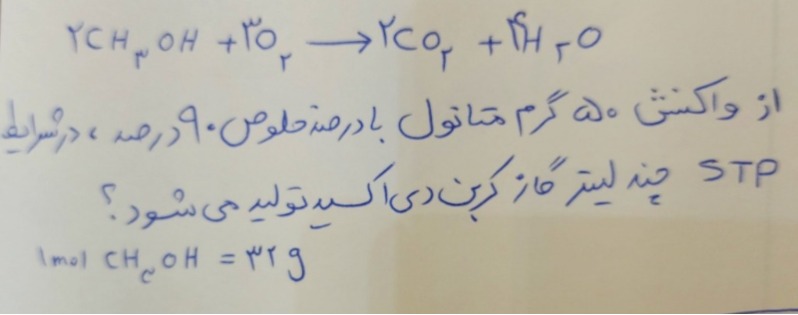 ۲CH۳OH + ۳O۲ → ۲CO۲ + ۴H۲O
از واکنش ۵۰ گرم متانول با درصد خلوص ۹۰ درصد، در شرایط
STP چند لیتر گاز کربن دی اکسید تولید می شود؟
1mol CH۳OH = ۳۲g